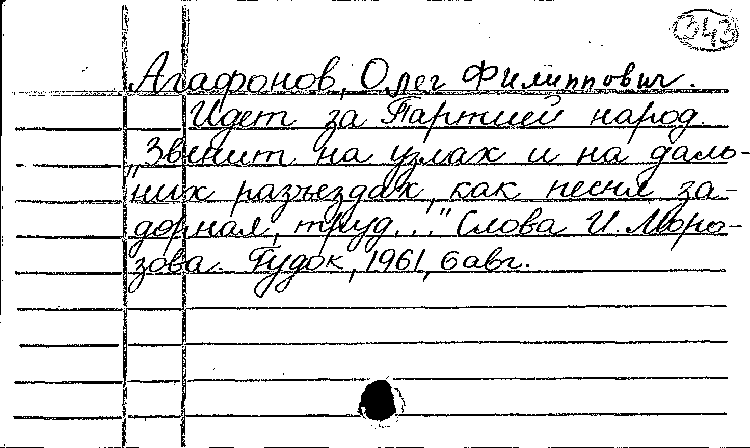 343
Агафонов, Олег Филиппович.
Идет за Партией народ.
„Звенит на узлах и на даль-
них разъездах, как песня за-
дорная, труд..." Слова И. Моро-
зова. Гудок, 1961, 6 авг.